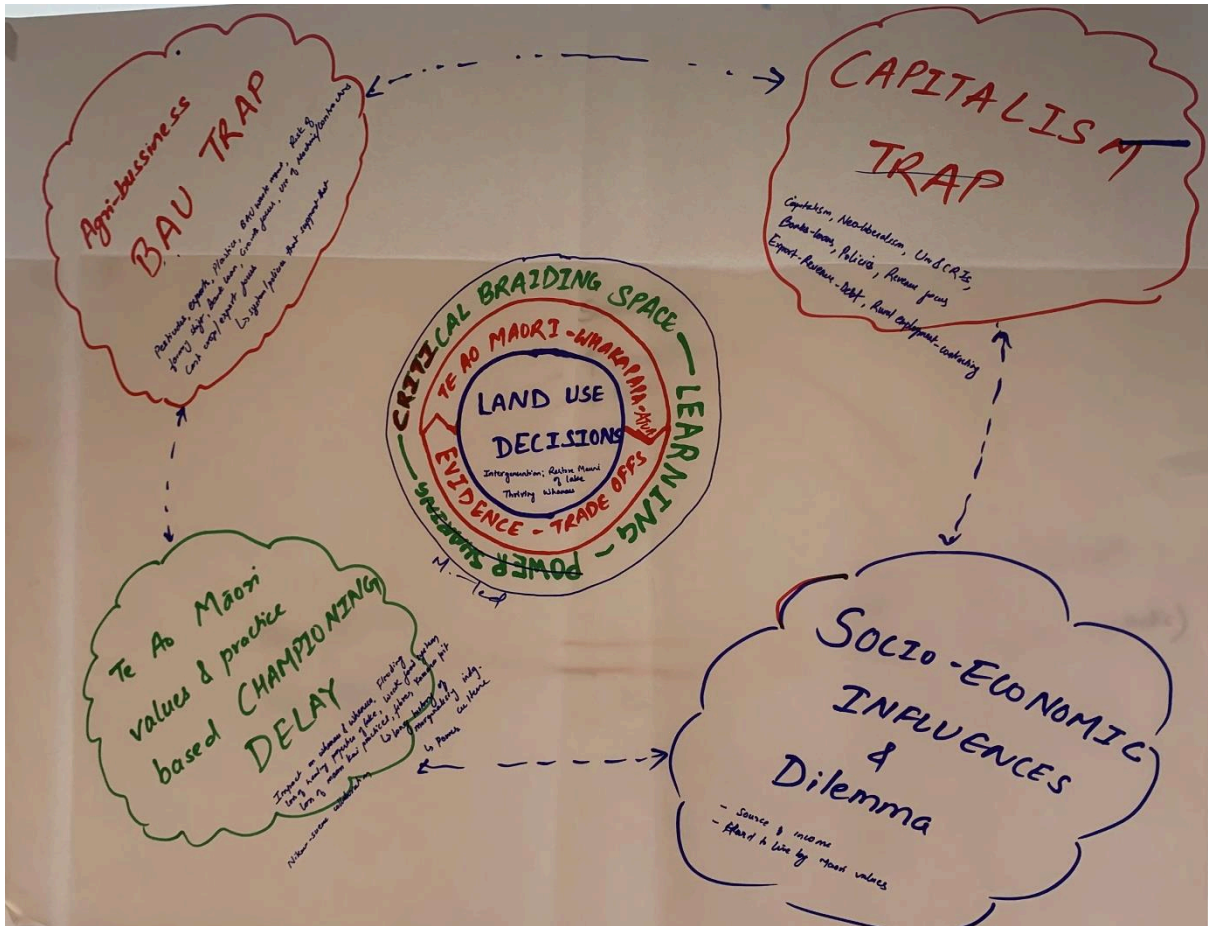 Agri-bussiness
BAU TRAP
Pesticides, exports, Plastics, BAU waste mgmt, Risk of
loan, Growth focus, use of machine/contractors
export focus
↳ system/policies that support that
CAPITALISM
TRAP
Capitalism, Neo-liberalism, Uni & CRIs,
Banks-loans, Policies, Revenue focus
Export-Revenue-Debt, Rural employment-contracting
CRITICAL BRAIDING SPACE — LEARNING - POWER SHARING —
TE AO MAORI - WHAKAPAPA - ATUA
EVIDENCE - TRADE OFFS
LAND USE
DECISIONS
Intergeneration; Restore Mauri
of lake
Thriving Whanau
M.
Te Ao Māori
values & practice
based CHAMPIONING
DELAY
Impact on whenua & whanau, Flooding
loss of healing properties of lake, Weak food system,
loss of maara kai practices,
↳ long history of
marginalising indg.
culture
↳ Power
SOCIO-ECONOMIC
INFLUENCES
&
Dilemma
- source of income
- Hard to live by Maori values